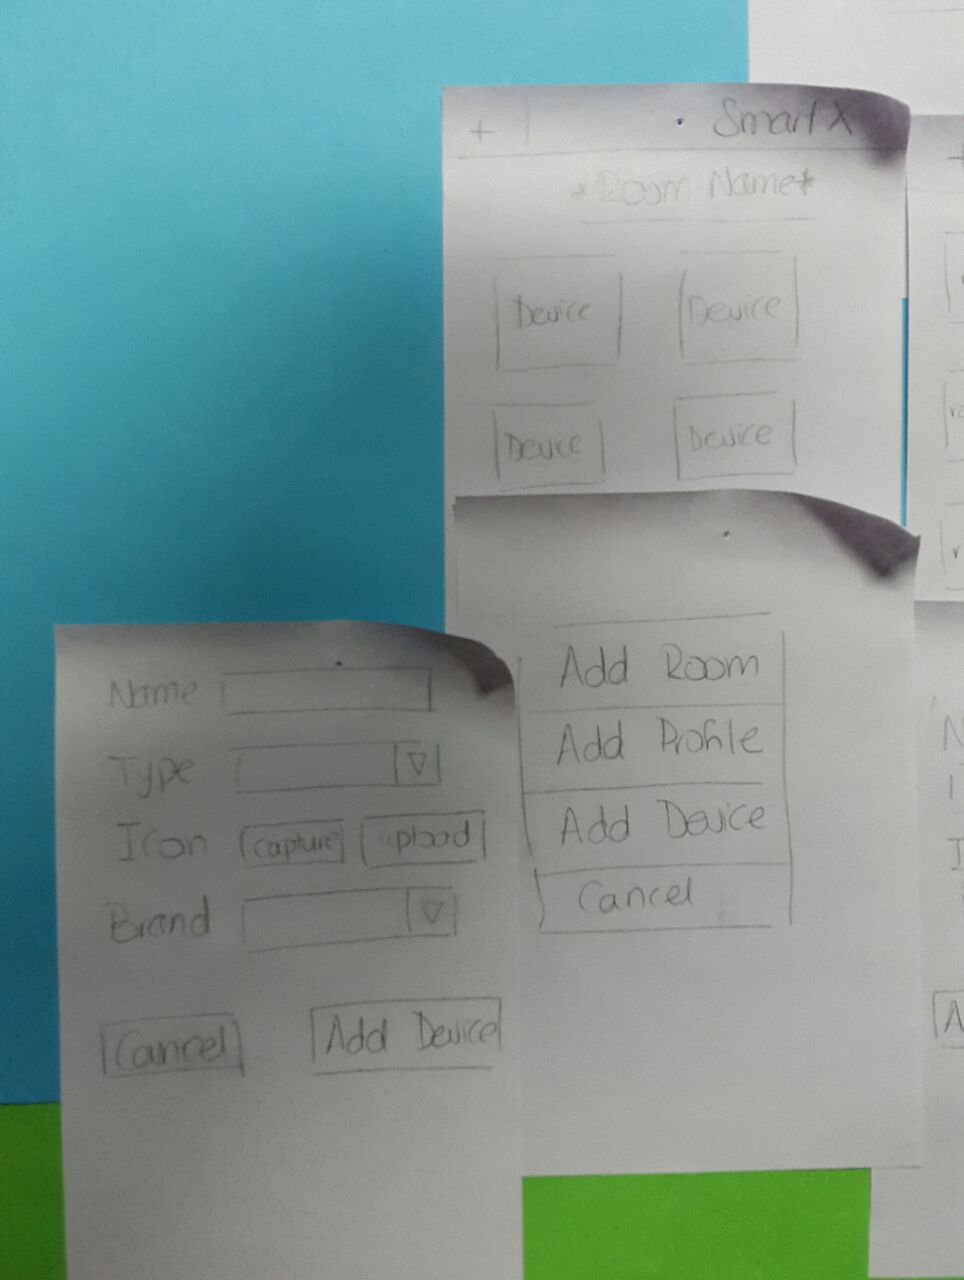 + Smart X
*Room Name*
Device Device
Device Device
Add Room
Add Profile
Add Device
Cancel
Name
Type
Icon capture upload
Brand
Cancel Add Device